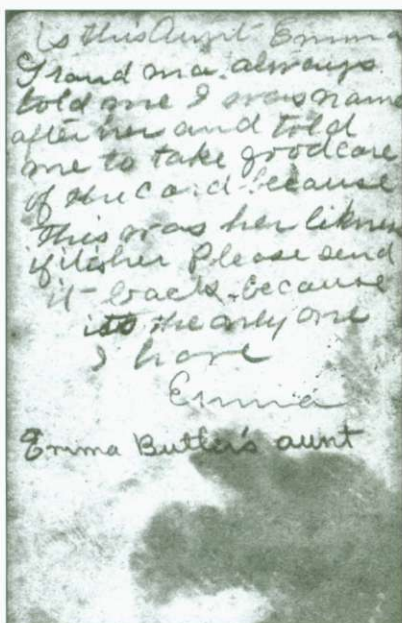 is this Aunt Emma
Grand ma always
told me I was name
after her and told
me to take good care
of the card because
this was her likness
if its her Please send
it back because
its the only one
I have
Emma
Emma Butler's aunt